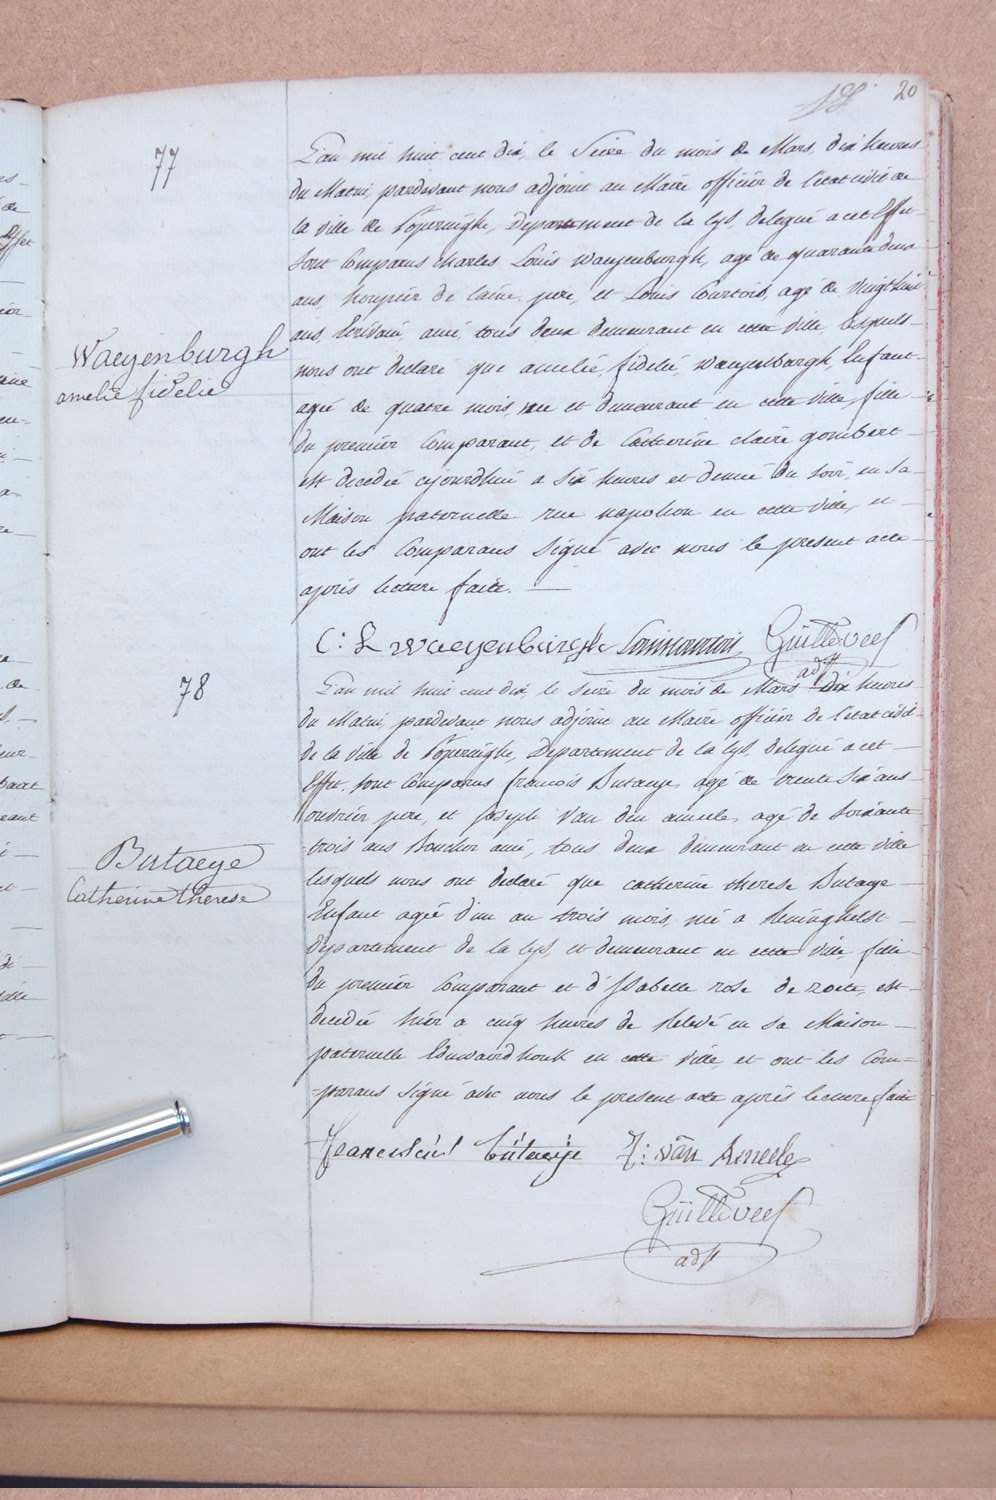 20
77
L'an mil huit cent dix, le Seize du mois de Mars, dix heures
du Matin, pardevant nous adjoint au Maire officier de l'etat civil de
la ville de Poperinghe, Departement de la Lys, delegué a cet Effet
sont Comparus charles Louis Waeyenburgh, agé de quarante deux
ans, houpier de laine, pere, et Louis Courtois, agé de vingt huit
ans, Ecrivain, ami, tous deux demeurant en cette ville, lesquels
nous ont declaré que amelie, fidelie, Waeyenburgh, Enfant
Waeyenburgh
amelie fidelie
agée de quatre mois, née et demeurant en cette ville, fille
du premier Comparant, et de Catherine claire gombert
est decedée cejourdhui a Six heures et demie du soir, en sa
Maison paternelle rue napoleon en cette ville, et
ont les Comparans Signé avec nous le present acte
aprés lecture faite.
C: L Waeyenburgh Louis Courtois Guilleveel
adjt
78
L'an mil huit cent dix, le seize du mois de Mars dix heures
du Matin, pardevant nous adjoint au Maire officier de l'etat civil
de la ville de Poperinghe, Departement de la Lys, delegué a cet
Effet, sont Comparus francois Butaeye, agé de trente Six ans
ouvrier pere, et Joseph Van den ameele, agé de Soixante
trois ans Boucher ami, tous deux demeurant en cette ville
Butaeye
Catherine therese
lesquels nous ont declaré que catherine therese Butaeye
Enfant agée d'un an trois mois, née a Reninghelst
departement de la Lys, et demeurant en cette ville, fille
du premier Comparant et d'Isabelle rose de zoete, est
decedée hier a cinq heures de Relevé en sa Maison
paternelle en cette ville, et ont les Com=
=parans Signé avec nous le present acte aprés lecture faite
Franciscus Butaeije J: van Ameele
Guilleveel
adjt